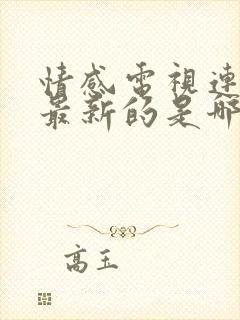 情感電視連
最新的是哪
高玉